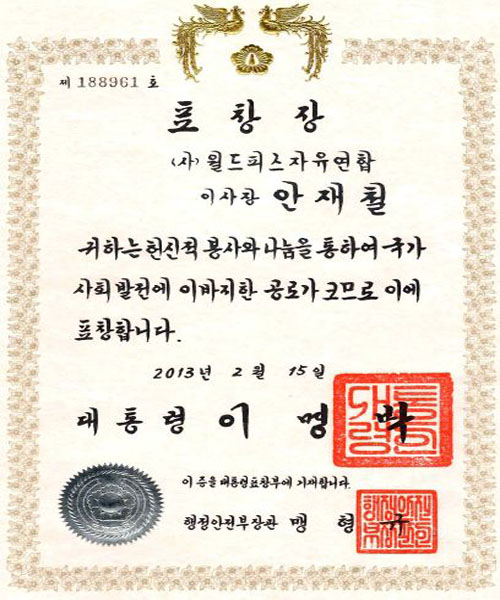 제 188961 호
표 창 장
(사) 월드피스자유연합
이사장 안재철
귀하는 헌신적 봉사와 나눔을 통하여 국가
사회발전에 이바지한 공로가 크므로 이에
표창합니다.
2013년 2월 15일
대통령 이 명 박
이 증을 대통령표창부에 기재합니다.
행정안전부장관 맹 형 규